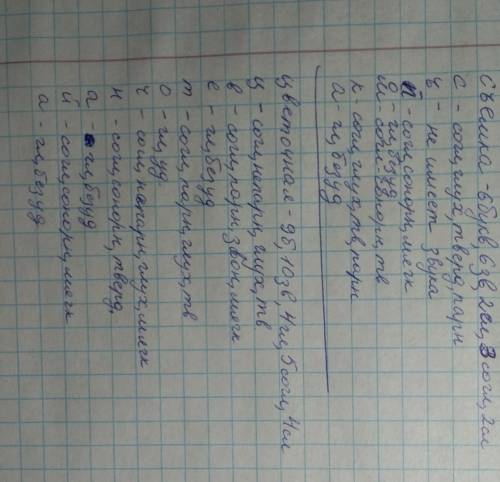 Съемка - 6 букв, 6 зв, 2 гл, 3 согл, 2 сл
с - согл, глух, тверд, парн
ъ - не имеет звука
й - согл, сонорн, мягк
м - согл, сонорн, тв
к - согл, глух, тв, парн
а - гл, безуд
Цветочная - 9б, 10зв, 4гл, 5согл, 4сл
ц - согл, непарн, глух, тв
в - согл, парн, звон, мягк
е - гл, безуд
т - согл, парн, глух, тв
о - гл, уд.
ч - согл, непарн, глух, мягк
н - согл, сонорн, тверд,
а - гл, безуд
й - согл, сонорн, мягк
а - гл, безуд